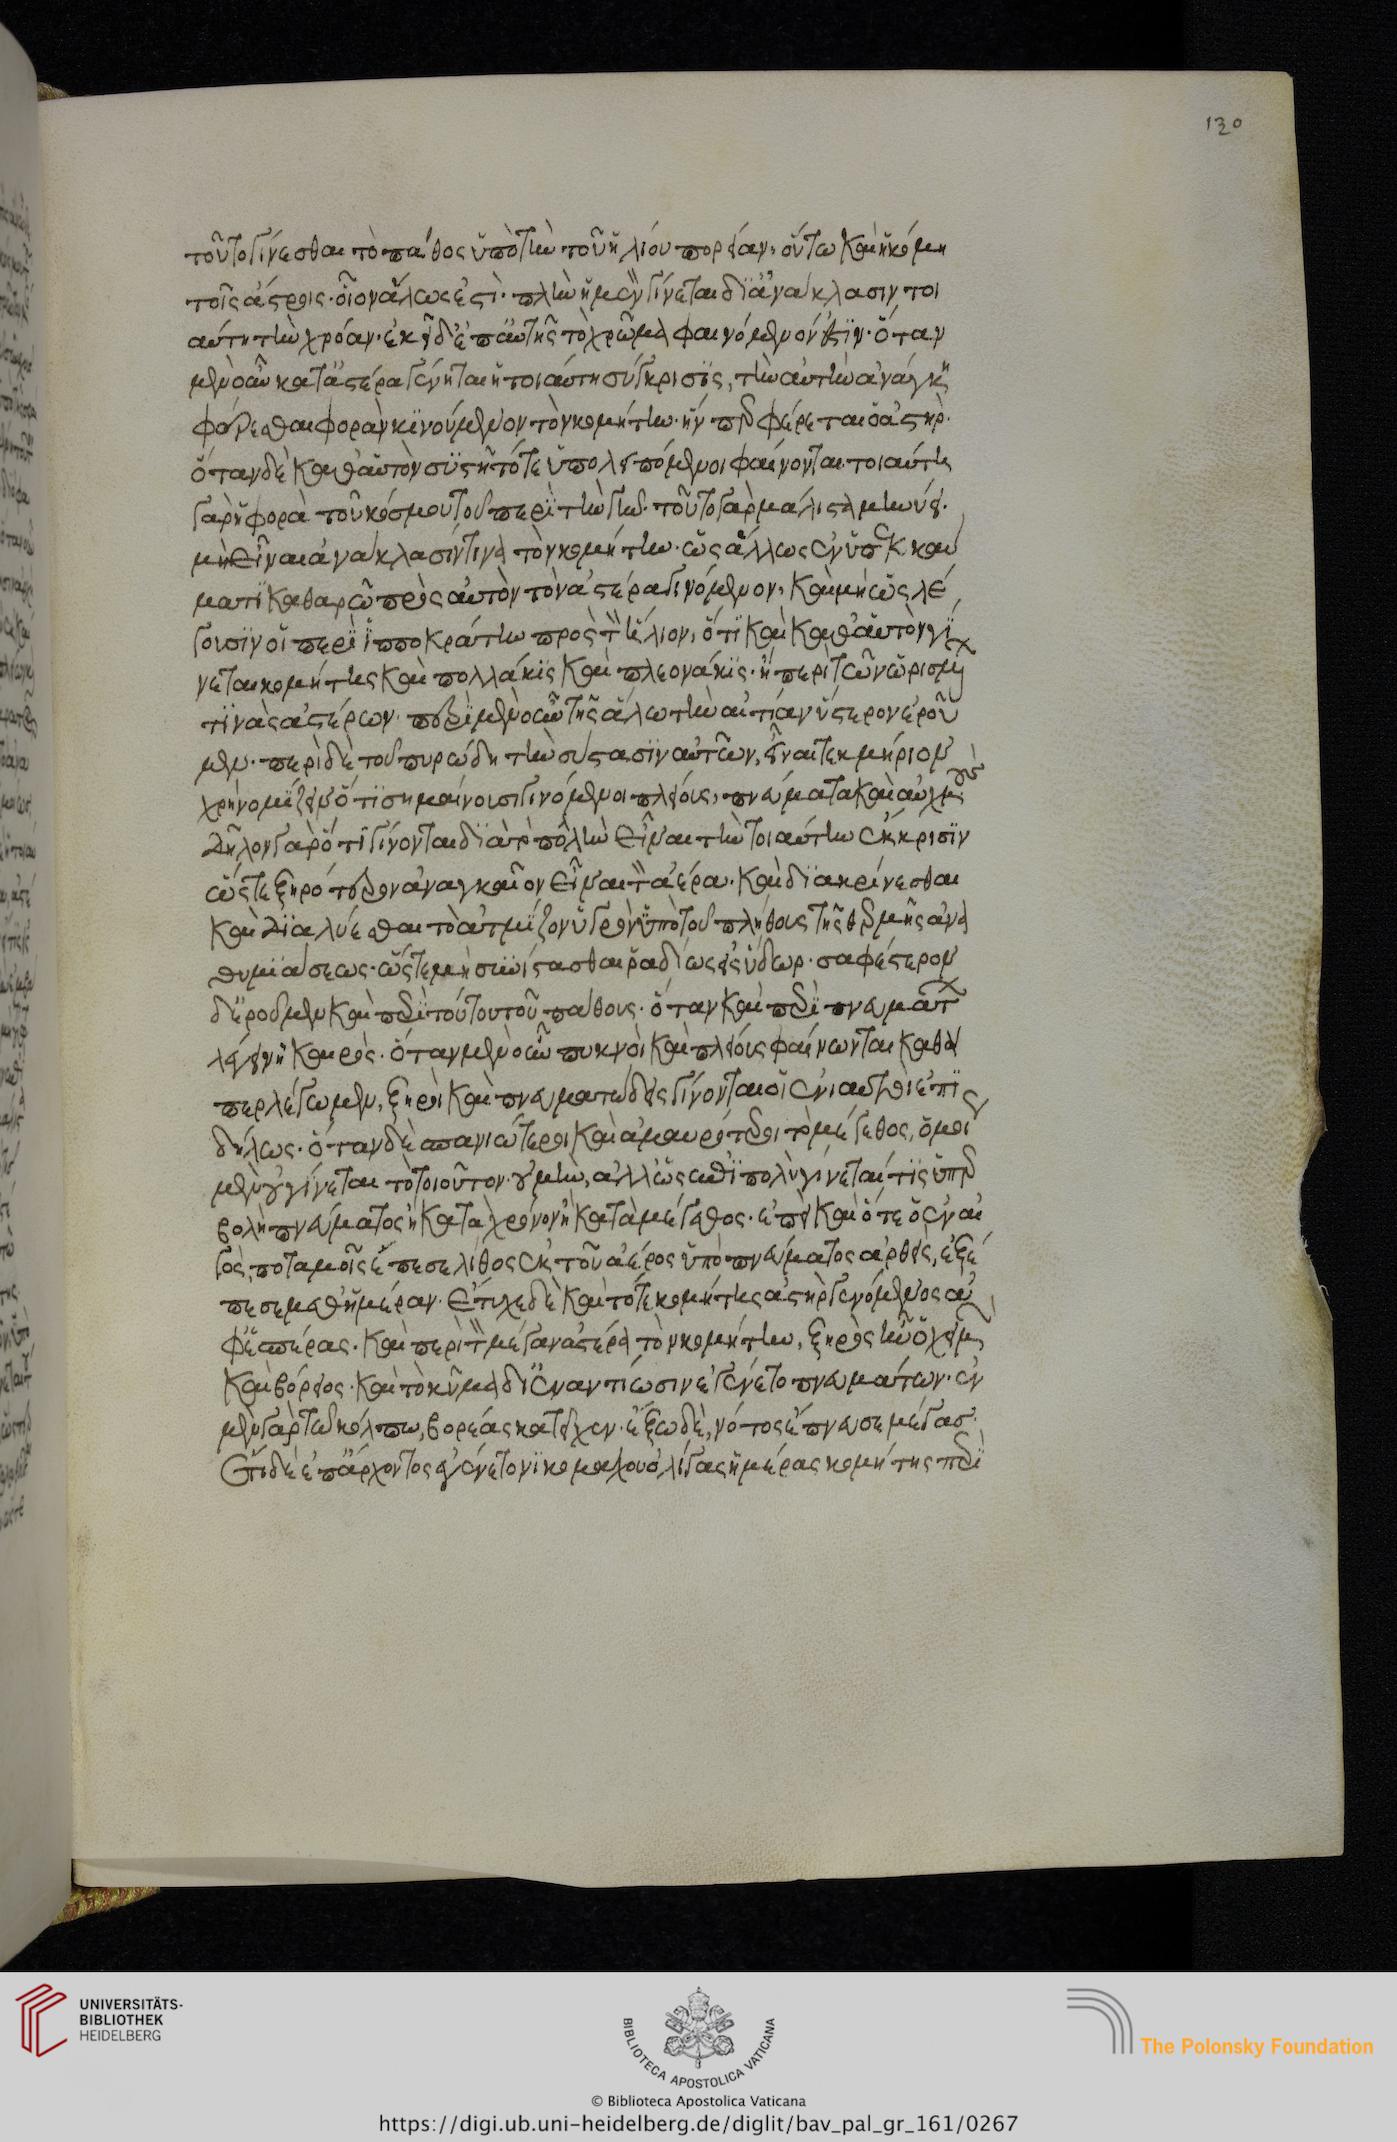 130
τοῦτο γίνεσθαι τὸ πάθος ὑπὸ τὴν τοῦ ἡλίου πορείαν, οὕτω καὶ ἡ κόμη
τοῖς ἄστροις οἷον ἅλως ἐστί· πλὴν ἡ μὲν γίνεται δι' ἀνάκλασιν τοι
αύτη τὴν χρόαν· ἐκεῖ δ' ἐπ' αὐτῆς τὸ χρῶμα φαινόμενόν ἐστιν· ὅταν
μὲν οὖν κατὰ ἀστέρα γένηται ἡ τοιαύτη σύγκρισις, τὴν αὐτὴν ἀνάγκη
φαίνεσθαι φορὰν κινούμενον τὸν κομήτην ἥνπερ φέρεται ὁ ἀστήρ·
ὅταν δὲ καθ' αὑτὸν συστῇ τότε ὑπολειπόμενοι φαίνονται. τοιαύτη
γὰρ ἡ φορὰ τοῦ κόσμου τοῦ περὶ τὴν γῆν· τοῦτο γὰρ μάλιστα μηνύει
μὴ εἶναι ἀνάκλασίν τινα τὸν κομήτην ὡς ἅλως ἐν ὑπεκκαύ
ματι καθαρῷ πρὸς αὐτὸν τὸν ἀστέρα γινόμενον, καὶ μὴ ὡς λέ
γουσιν οἱ περὶ ἱπποκράτην πρὸς τὸν ἥλιον, ὅτι καὶ καθ' αὑτὸν γί
νεται κομήτης καὶ πολλάκις καὶ πλεονάκις ἢ περὶ τῶν ὡρισμένων
τινὰς ἀστέρων· περὶ μὲν οὖν τῆς ἅλω τὴν αἰτίαν ὕστερον ἐροῦ
μεν· περὶ δὲ τοῦ πυρώδη τὴν σύστασιν αὐτῶν εἶναι τεκμήριον
χρὴ νομίζειν ὅτι σημαίνουσι γινόμενοι πλείους, πνεύματα καὶ αὐχμούς
δῆλον γὰρ ὅτι γίνονται διὰ τὸ πολλὴν εἶναι τὴν τοιαύτην ἔκκρισιν
ὥστε ξηρότερον ἀναγκαῖον εἶναι τὸν ἀέρα· καὶ διακρίνεσθαι
καὶ διαλύεσθαι τὸ ἀτμίζον ὑγρὸν ὑπὸ τοῦ πλήθους τῆς θερμῆς ἀνα
θυμιάσεως ὥστε μὴ συνίστασθαι ῥᾳδίως εἰς ὕδωρ· σαφέστερον
δ' ἐροῦμεν καὶ περὶ τούτου τοῦ πάθους ὅταν καὶ περὶ πνευμάτων
λέγειν ᾖ καιρός· ὅταν μὲν οὖν πυκνοὶ καὶ πλείους φαίνωνται καθά
περ λέγωμεν, ξηροὶ καὶ πνευματώδεις γίνονται οἱ ἐνιαυτοὶ ἐπι
δήλως· ὅταν δὲ σπανιώτεροι καὶ ἀμαυρότεροι τὸ μέγεθος, ὁμοί
μὲν οὐ γίνεται τὸ τοιοῦτον· οὐ μὴν, ἀλλ' ὡς ἐπὶ πολὺ γίνεταί τις ὑπερ
βολὴ πνεύματος ἢ κατὰ χρόνον ἢ κατὰ μέγεθος· ἐπεὶ καὶ ὅτε ὁ ἐν αἰ
γὸς ποταμοῖς ἔπεσε λίθος ἐκ τοῦ ἀέρος ὑπὸ πνεύματος ἀρθείς, ἐξέ
πεσε μεθ' ἡμέραν· ἔτυχε δὲ καὶ τότε κομήτης ἀστὴρ γενόμενος ἀ
φ' ἑσπέρας. καὶ περὶ τὸν μέγαν ἀστέρα τὸν κομήτην, ξηρὸς ἦν ὁ χειμὼν
καὶ βόρειος· καὶ τὸ κῦμα δι' ἐναντίωσιν ἐγένετο πνευμάτων· ἐν
μὲν γὰρ τῷ κόλπῳ βορέας κατεῖχεν· ἔξω δὲ, νότος ἔπνευσε μέγας.
ἔτι δὲ ἐπ' ἄρχοντος ἐγένετο νικομάχου ὀλίγας ἡμέρας κομήτης περὶ
UNIVERSITÄTS-
BIBLIOTHEK
HEIDELBERG
BIBLIOTECA APOSTOLICA VATICANA
The Polonsky Foundation
© Biblioteca Apostolica Vaticana
https://digi.ub.uni-heidelberg.de/diglit/bav_pal_gr_161/0267